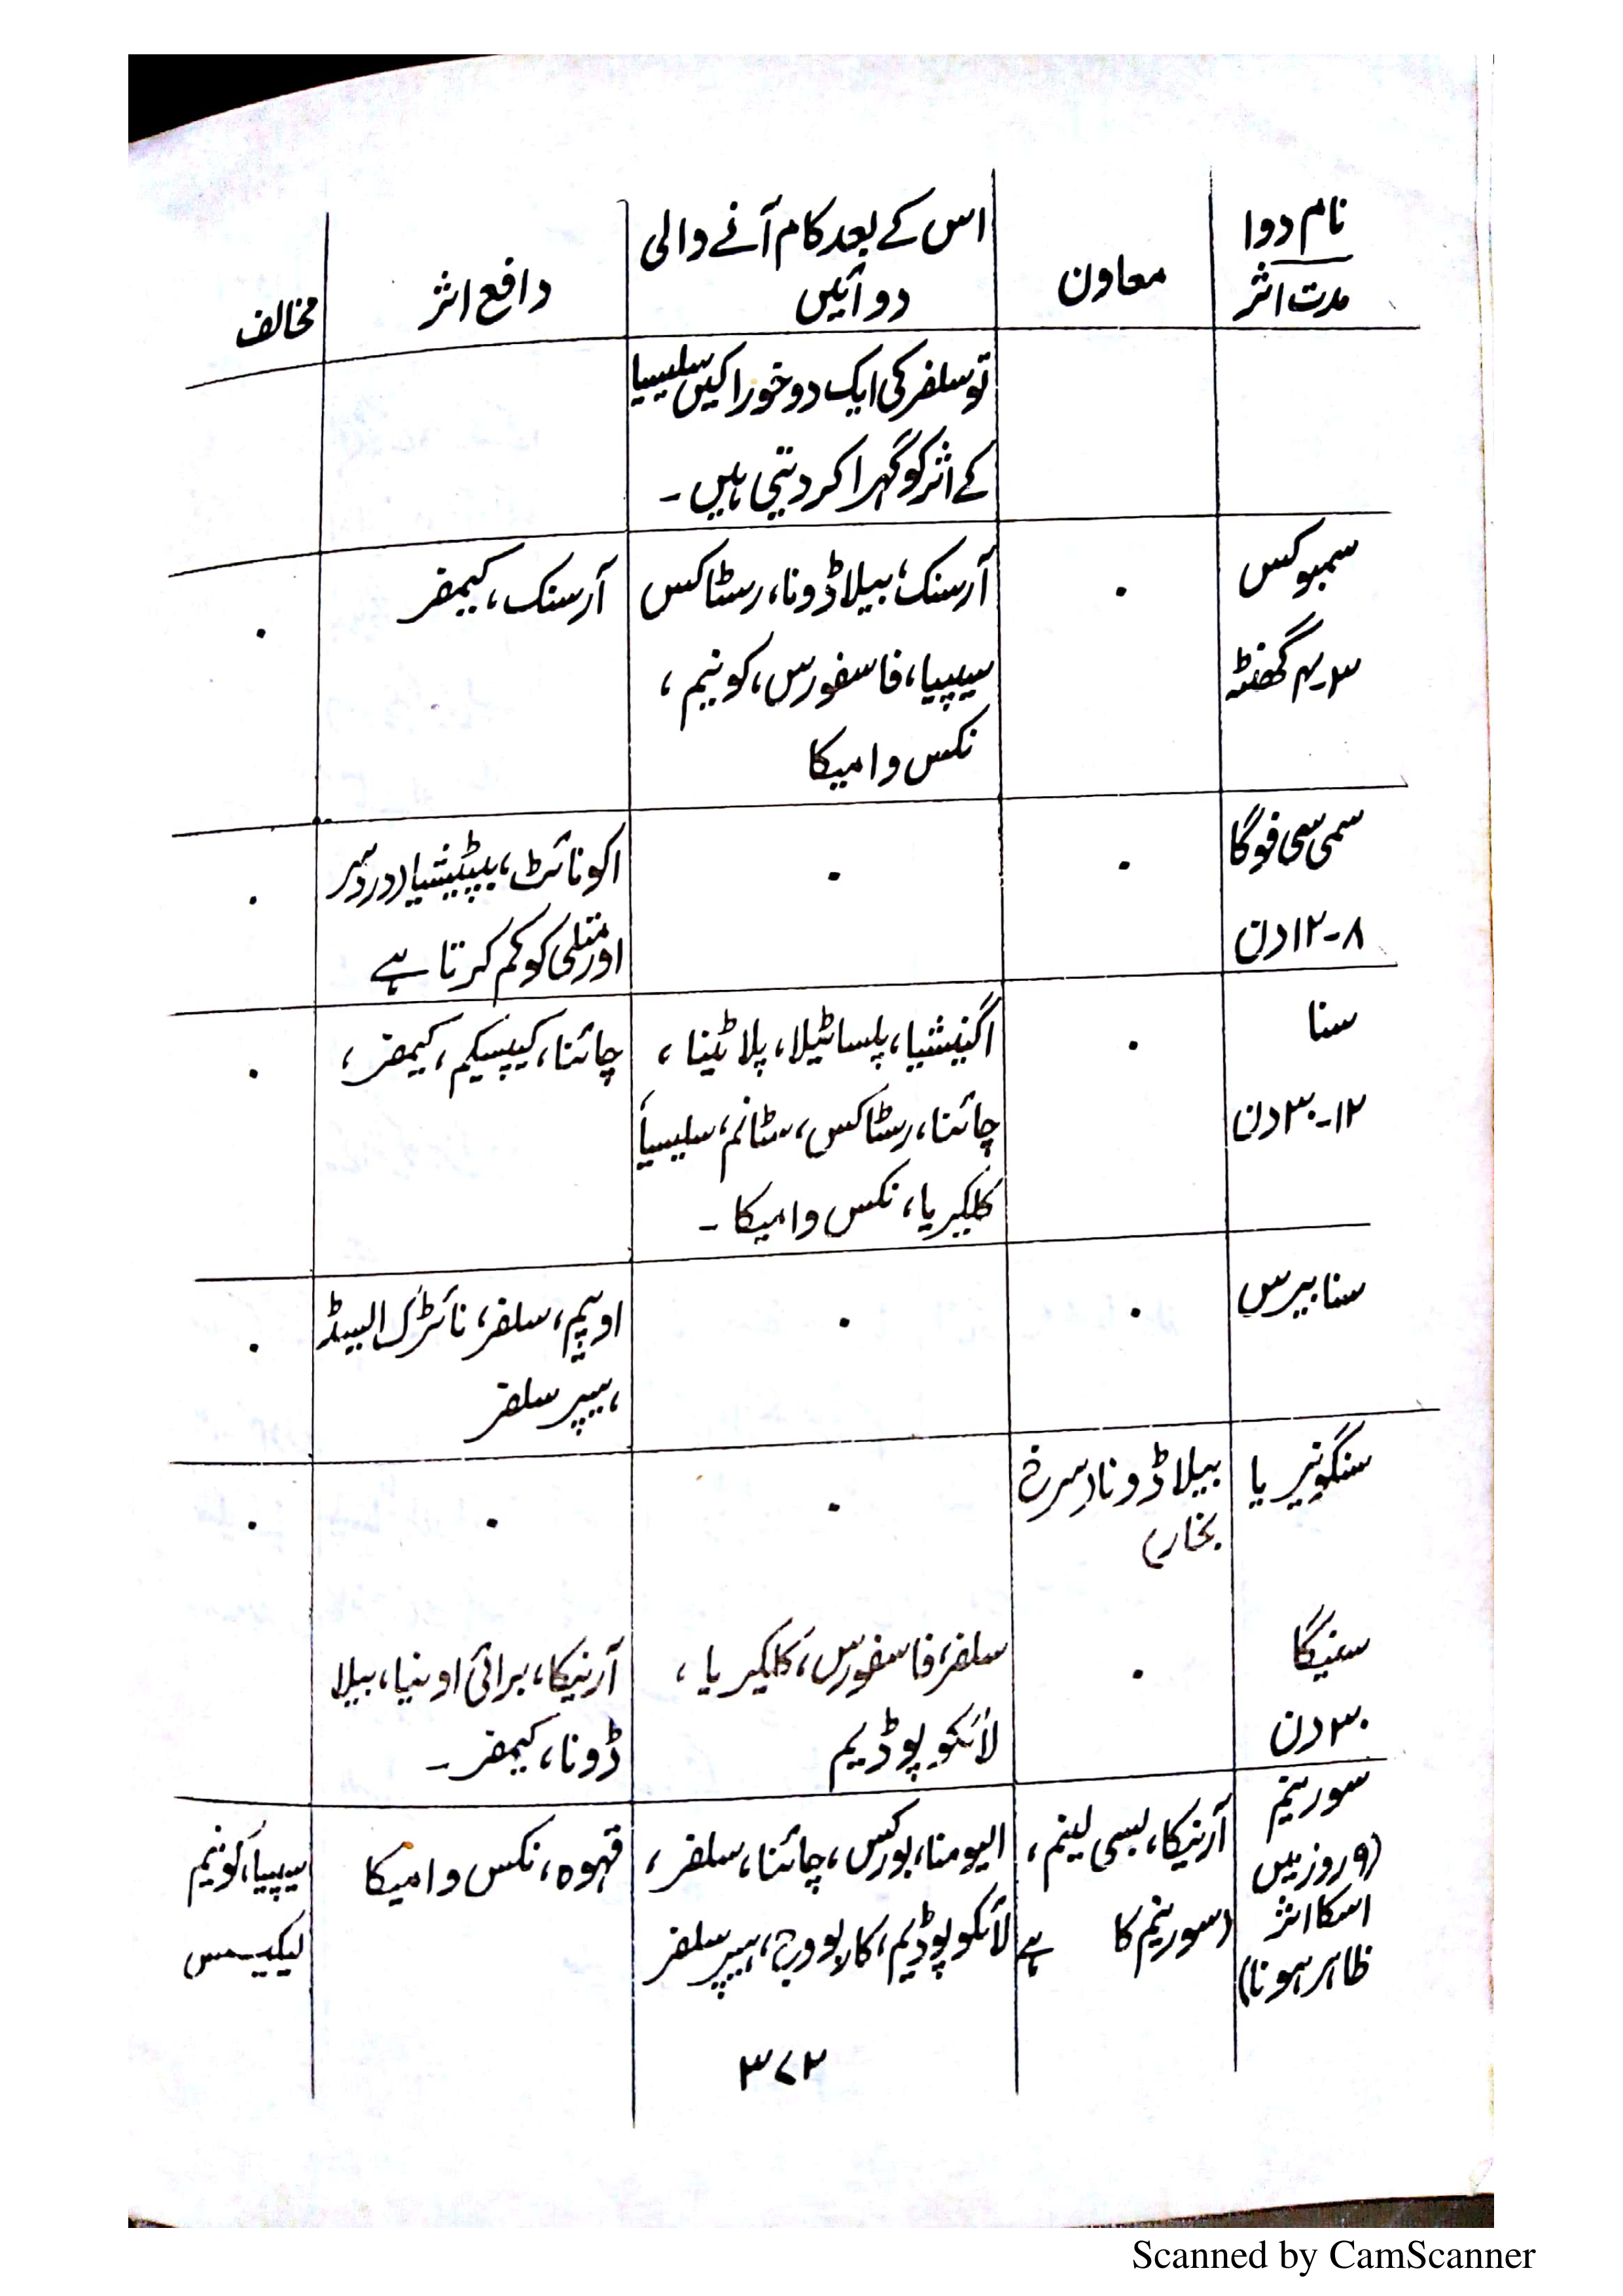 نام دوا
مدت اثر
معاون
اس کے بعد کام آنے والی
دوائیں
دافع اثر
مخالف
تو سلفر کی ایک دو خوراکیں سلیسیا
کے اثر کو گہرا کر دیتی ہیں۔
سمبوکس
۳-۴ گھنٹہ
۰
آرسنک، بیلاڈونا، رسٹاکس
سیپیا، فاسفورس، کونیم،
نکس وامیکا
آرسنک، کیمفر
۰
سمی سی فوگا
۸-۱۲ دن
۰
۰
اکونائٹ، بپٹیشیا (دردسر
اور متلی کو کم کرتا ہے
۰
سنا
۱۲-۳۰ دن
۰
اگنیشیا، پلساٹیلا، پلاٹینا،
چائنا، رسٹاکس، سٹانم، سلیسیا
کلکیریا، نکس وامیکا۔
چائنا، کیپسیکم، کیمفر،
۰
سنابیرس
۰
۰
اوپیم، سلفر، نائٹرک ایسڈ
ہیپر سلفر
۰
سنگونیریا
بیلاڈونا (سرخ
بخار)
۰
۰
۰
سنیگا
۳۰ دن
۰
سلفر، فاسفورس، کلکیریا،
لائکوپوڈیم
آرنیکا، برائی اونیا، بیلا
ڈونا، کیمفر۔
سورینم
(۹ روز میں
اسکا اثر
ظاہر ہونا)
آرنیکا، بسی لینم،
(سورینم کا ہے
الیومنا، بورکس، چائنا، سلفر،
لائکوپوڈیم، کاربوویج، ہیپر سلفر
قہوہ، نکس وامیکا
سیپیا، کونیم
لیکیسس
۳۷۲
Scanned by CamScanner